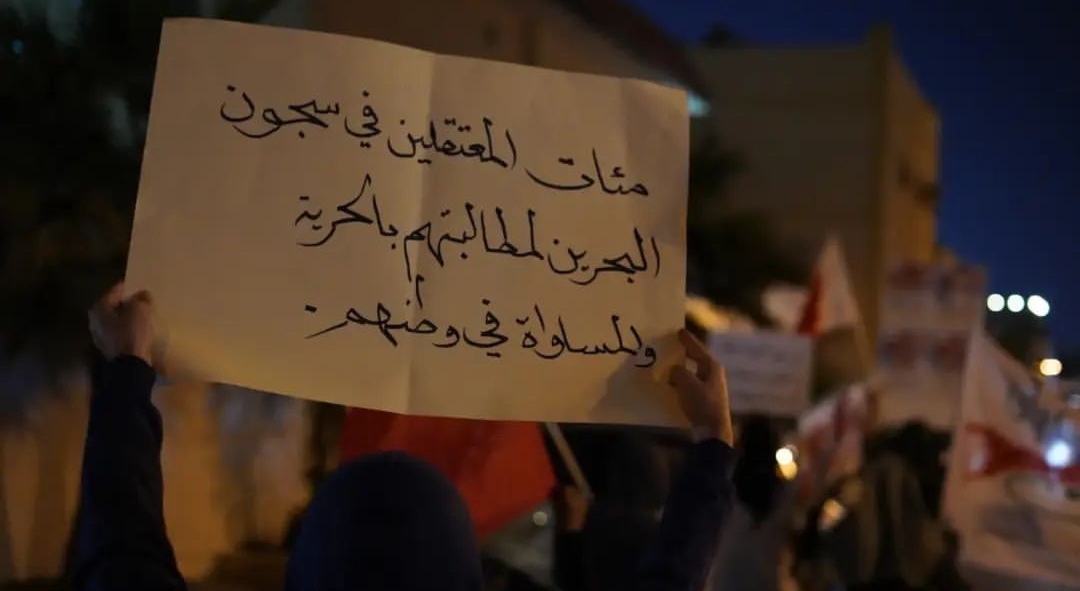 مئات المعتقلين في سجون
البحرين لمطالبتهم بالحرية
والمساواة في وطنهم.